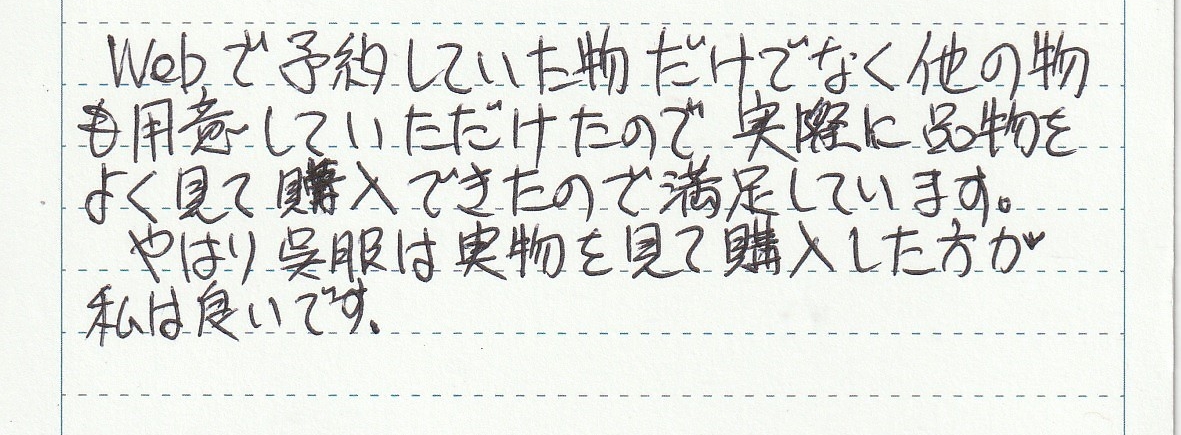 Webで予約していた物だけでなく他の物
も用意していただけたので実際に品物を
よく見て購入できたので満足しています。
やはり呉服は実物を見て購入した方が
私は良いです。